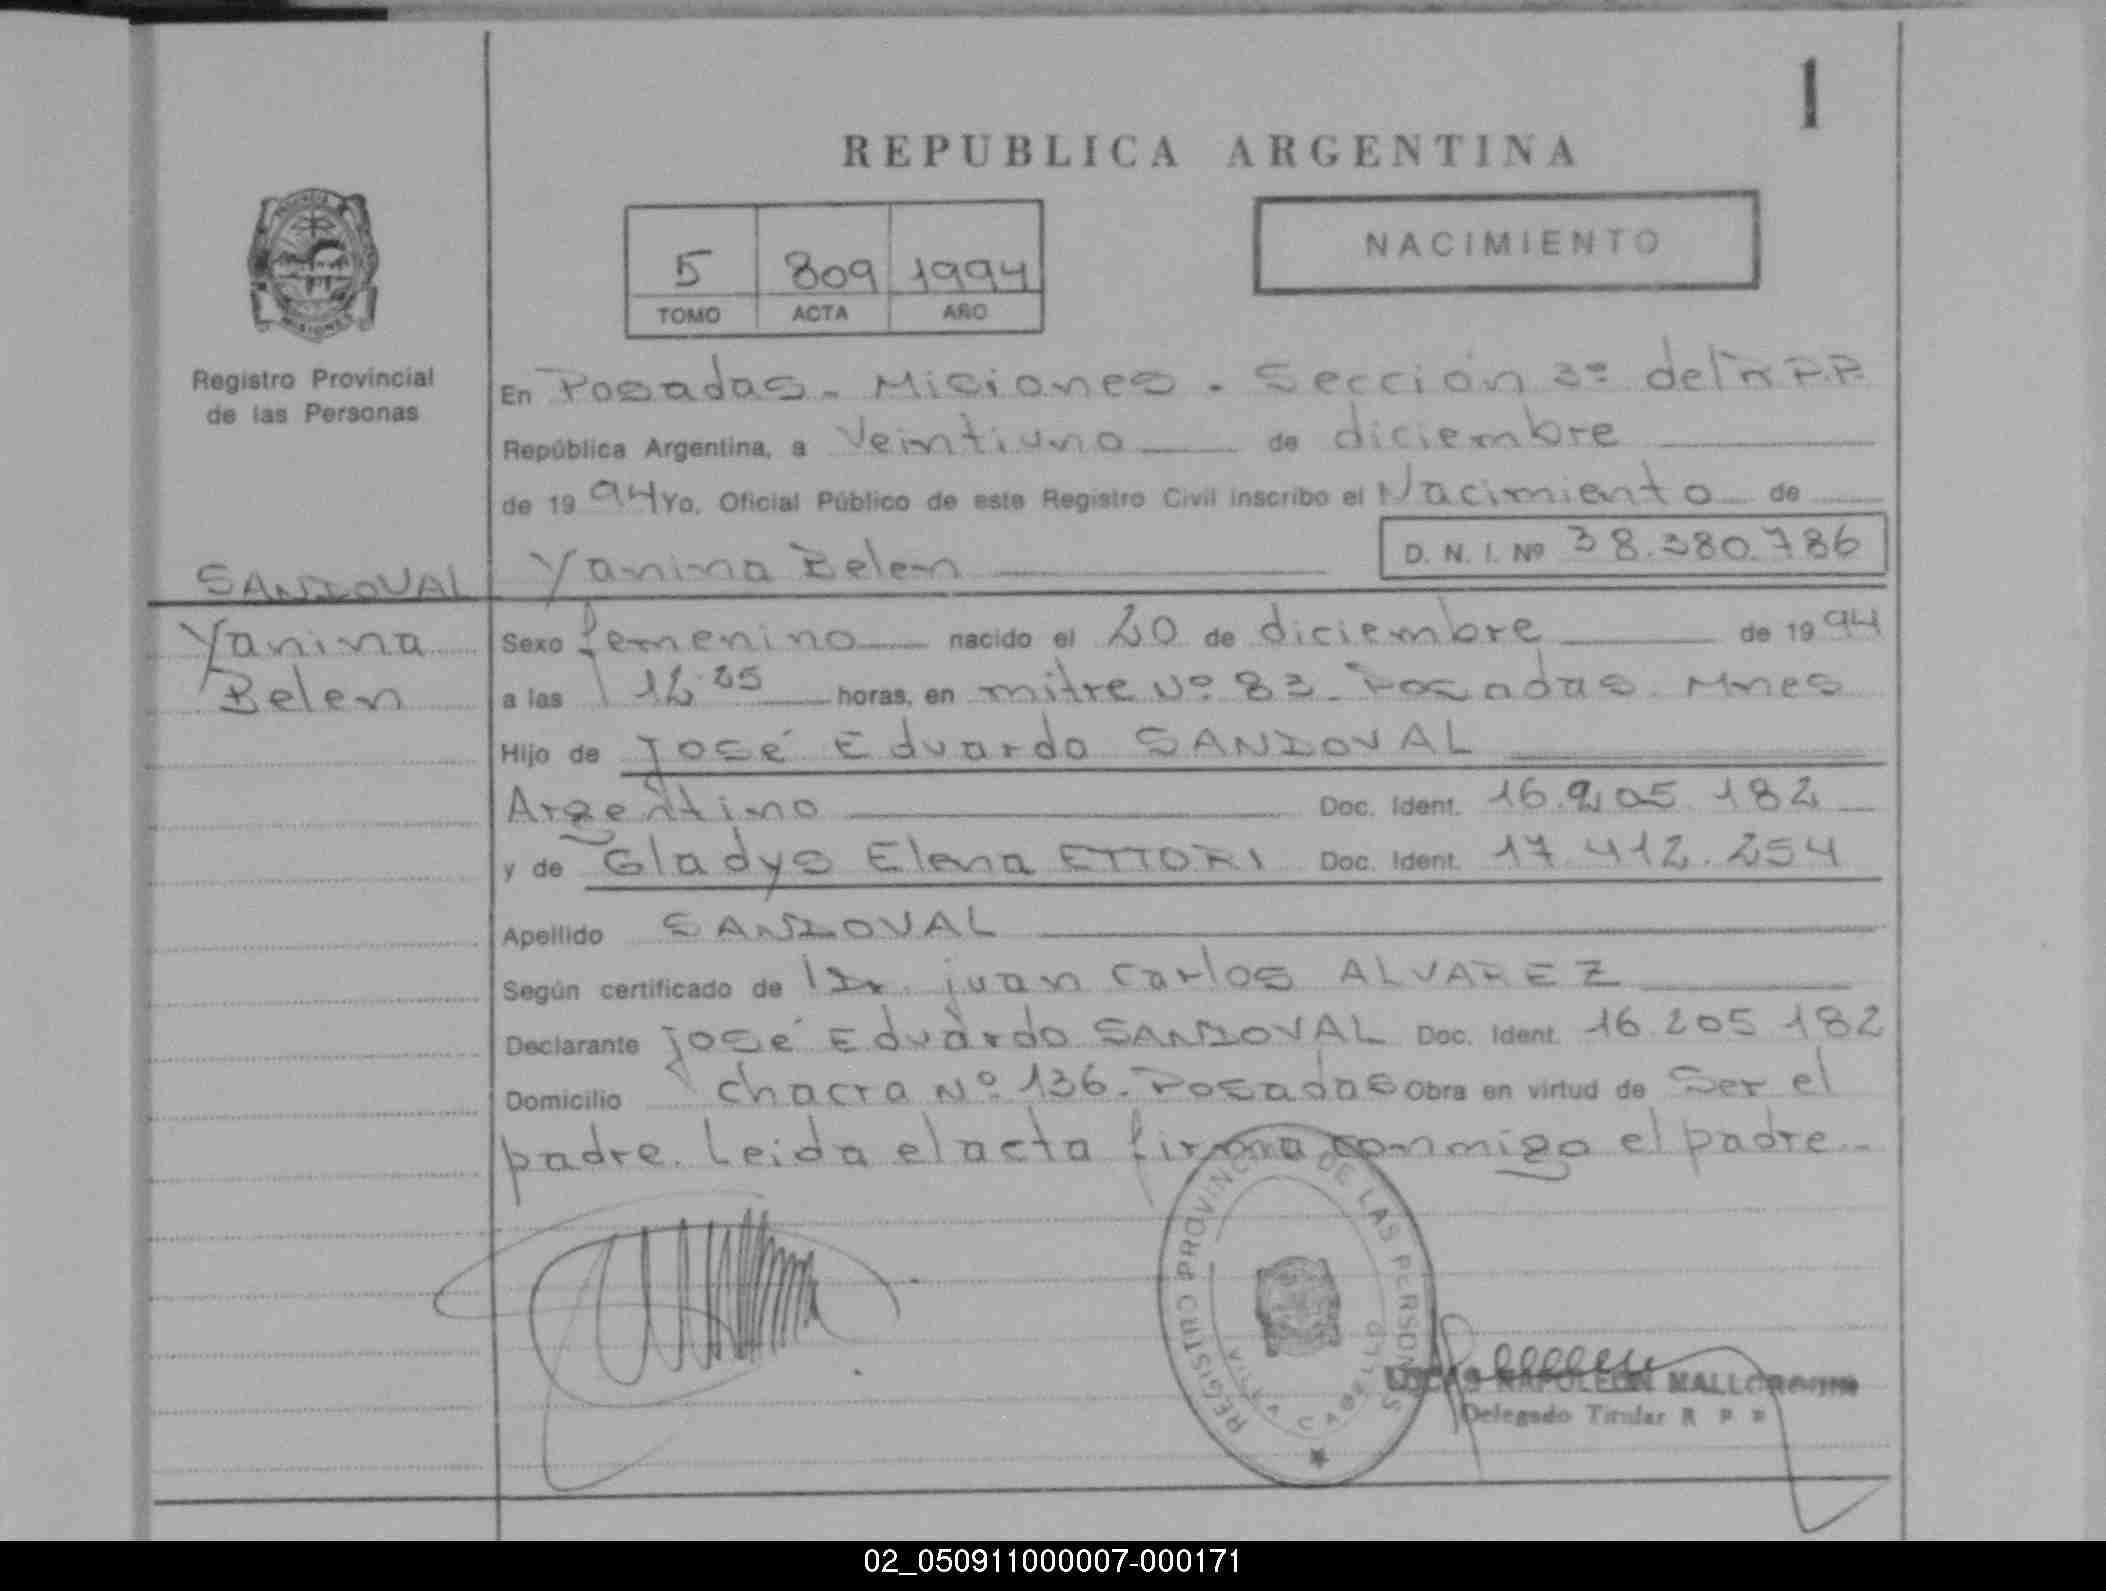 1
REPUBLICA ARGENTINA
NACIMIENTO
5 809 1994
TOMO ACTA AÑO
MISIONES
Registro Provincial
de las Personas
SANDOVAL
Yanina
Belen
En Posadas - Misiones - Sección 3ª del R.P.P.
República Argentina, a Veintiuno de diciembre
de 1994 Yo, Oficial Público de este Registro Civil inscribo el Nacimiento de
Yanina Belen D. N. I. Nº 38.380.786
Sexo femenino nacido el 20 de diciembre de 1994
a las 12 25 horas, en mitre Nº 83 - Posadas. Mnes
Hijo de José Eduardo SANDOVAL
Argentino Doc. Ident. 16.205.182
y de Gladys Elena ETTORI Doc. Ident. 17.412.254
Apellido SANDOVAL
Según certificado de Dr. juan Carlos ALVAREZ
Declarante José Eduardo SANDOVAL Doc. Ident. 16.205.182
Domicilio chacra Nº 136. Posadas Obra en virtud de Ser el
padre. Leida el acta firma conmigo el padre.-
REGISTRO PROVINCIAL DE LAS PERSONAS
CABELLO
LUCAS NAPOLEON
Delegado Titular R P P
02_050911000007-000171